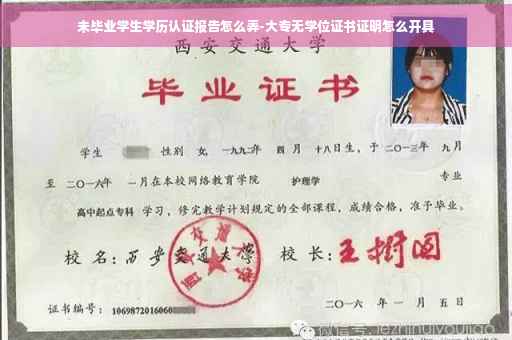 未毕业学生学历认证报告怎么弄-大专无学位证书证明怎么开具
西安交通大学
毕业证书
学生 性别 女，一九九二年 四 月 十八日生，于 二〇一三年 九月
至 二〇一六年 一月在本校网络教育学院 护理学 专业
高中起点专科 学习，修完教学计划规定的全部课程，成绩合格，准予毕业。
校 名：西安交通大学 校 长：王树国
西安交通大学
证书编号：1069872016060
二〇一六 年 一 月 五 日
微信号: jezhihuiyoujiao